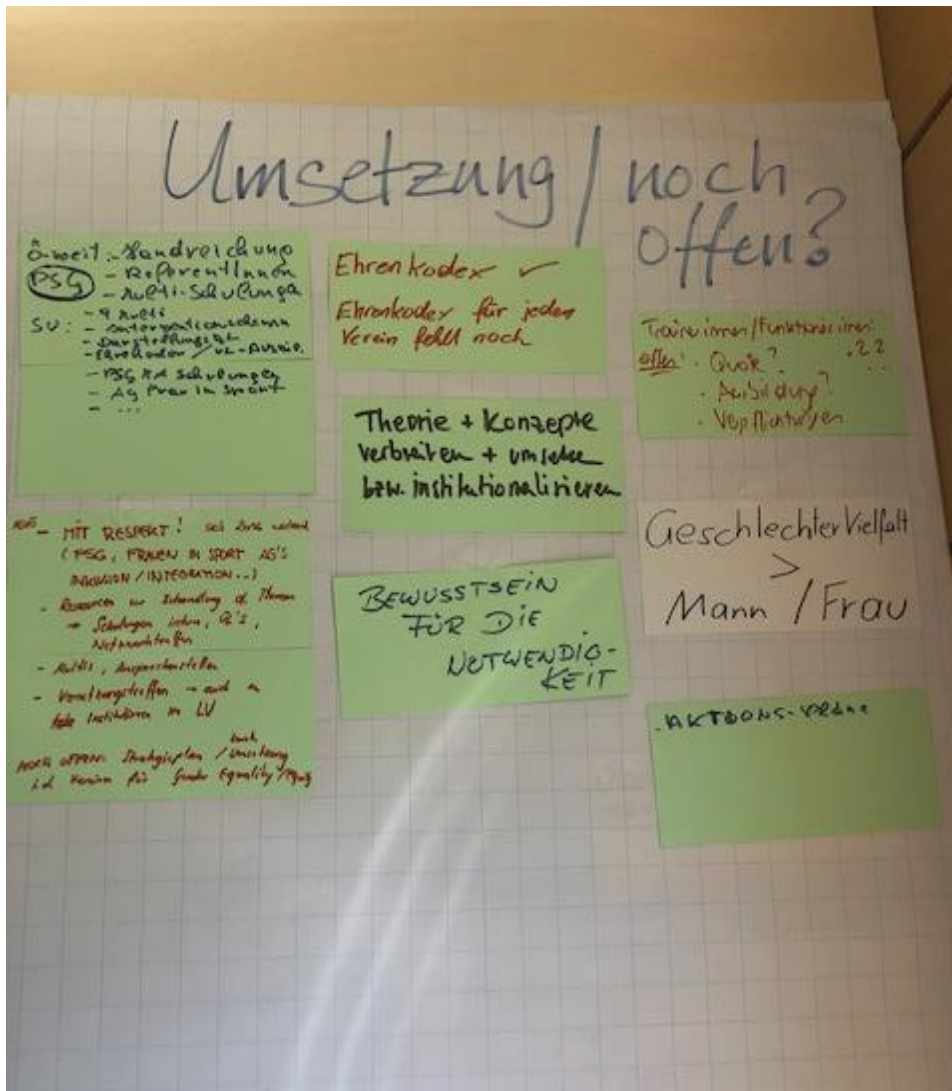 Umsetzung / noch
offen?
Ö-weit - Handreichung
PSG - ReferentInnen
- Multi-Schulunga
SV:
- Ehrenkodex /
- PSG KA Schulungen
- AG Frau im Sport
- ...
Ehrenkodex ✓
Ehrenkodex für jeden
Verein fehlt noch
Trainerinnen/Funktionärinnen
offen: · Quote? · ??
· Ausbildung?
· Verpflichtungen
Theorie + Konzepte
verbreiten + umsetzen
bzw. institutionalisieren
- MIT RESPEKT! seit
(PSG, FRAUEN IN SPORT AG'S
INKLUSION / INTEGRATION...)
- Ressourcen zur Behandlung d. Themen
→ Schulungen
Netzwerktreffen
- Multis, Ansprechstellen
- Vernetzungstreffen → auch
Institutionen im LV
NOCH OFFEN: Strategieplan / Umsetzung
i.d. Vereinen für Gender Equality /
BEWUSSTSEIN
FÜR DIE
NOTWENDIG-
KEIT
GeschlechterVielfalt
>
Mann / Frau
AKTIONS-PLÄNE